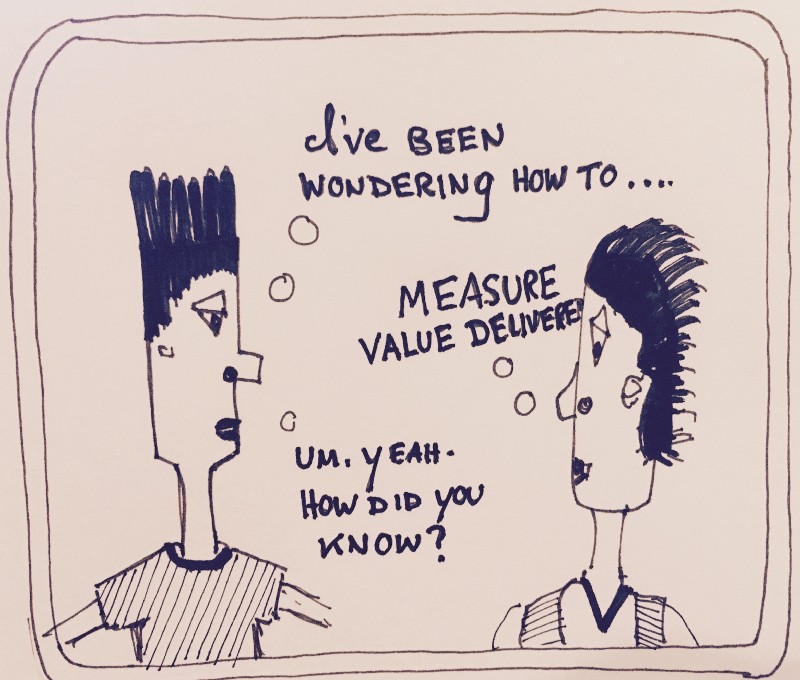 I've BEEN
WONDERING HOW TO....
MEASURE
VALUE DELIVERED
UM. YEAH.
HOW DID YOU
KNOW?